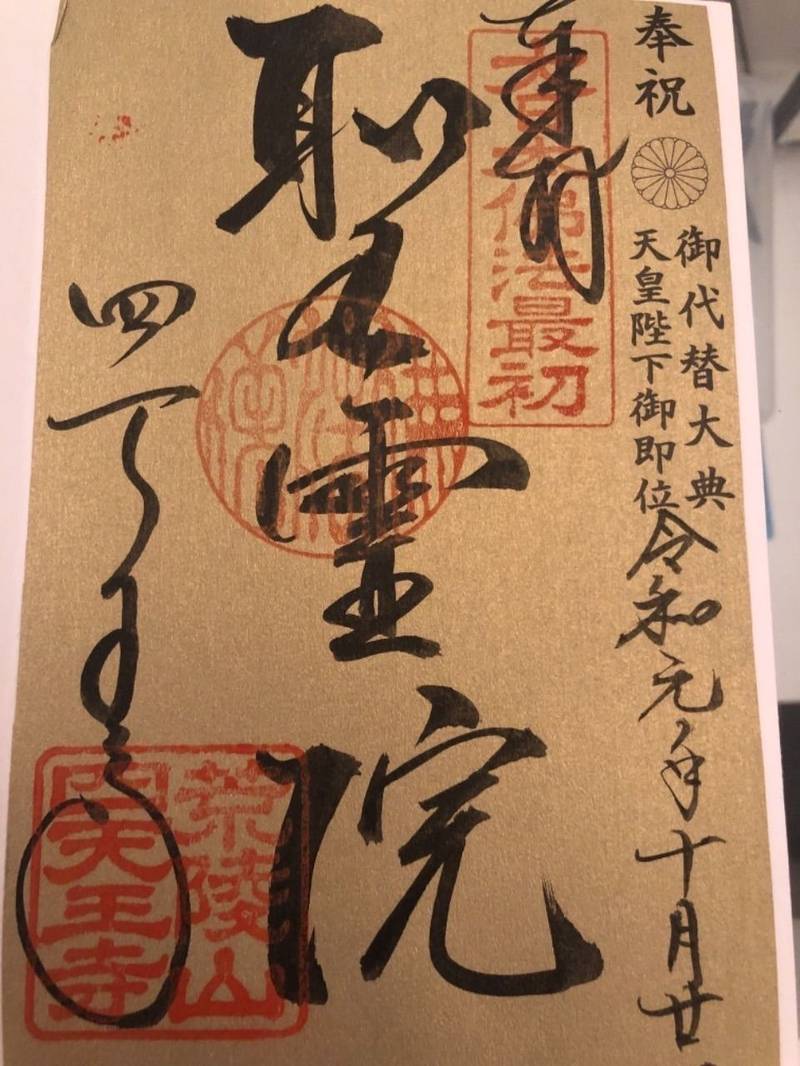 奉祝
御代替大典
天皇陛下御即位
令和元年十月廿
奉拝
大日本佛法最初
聖霊院
四天王寺
荒陵山
四天王寺